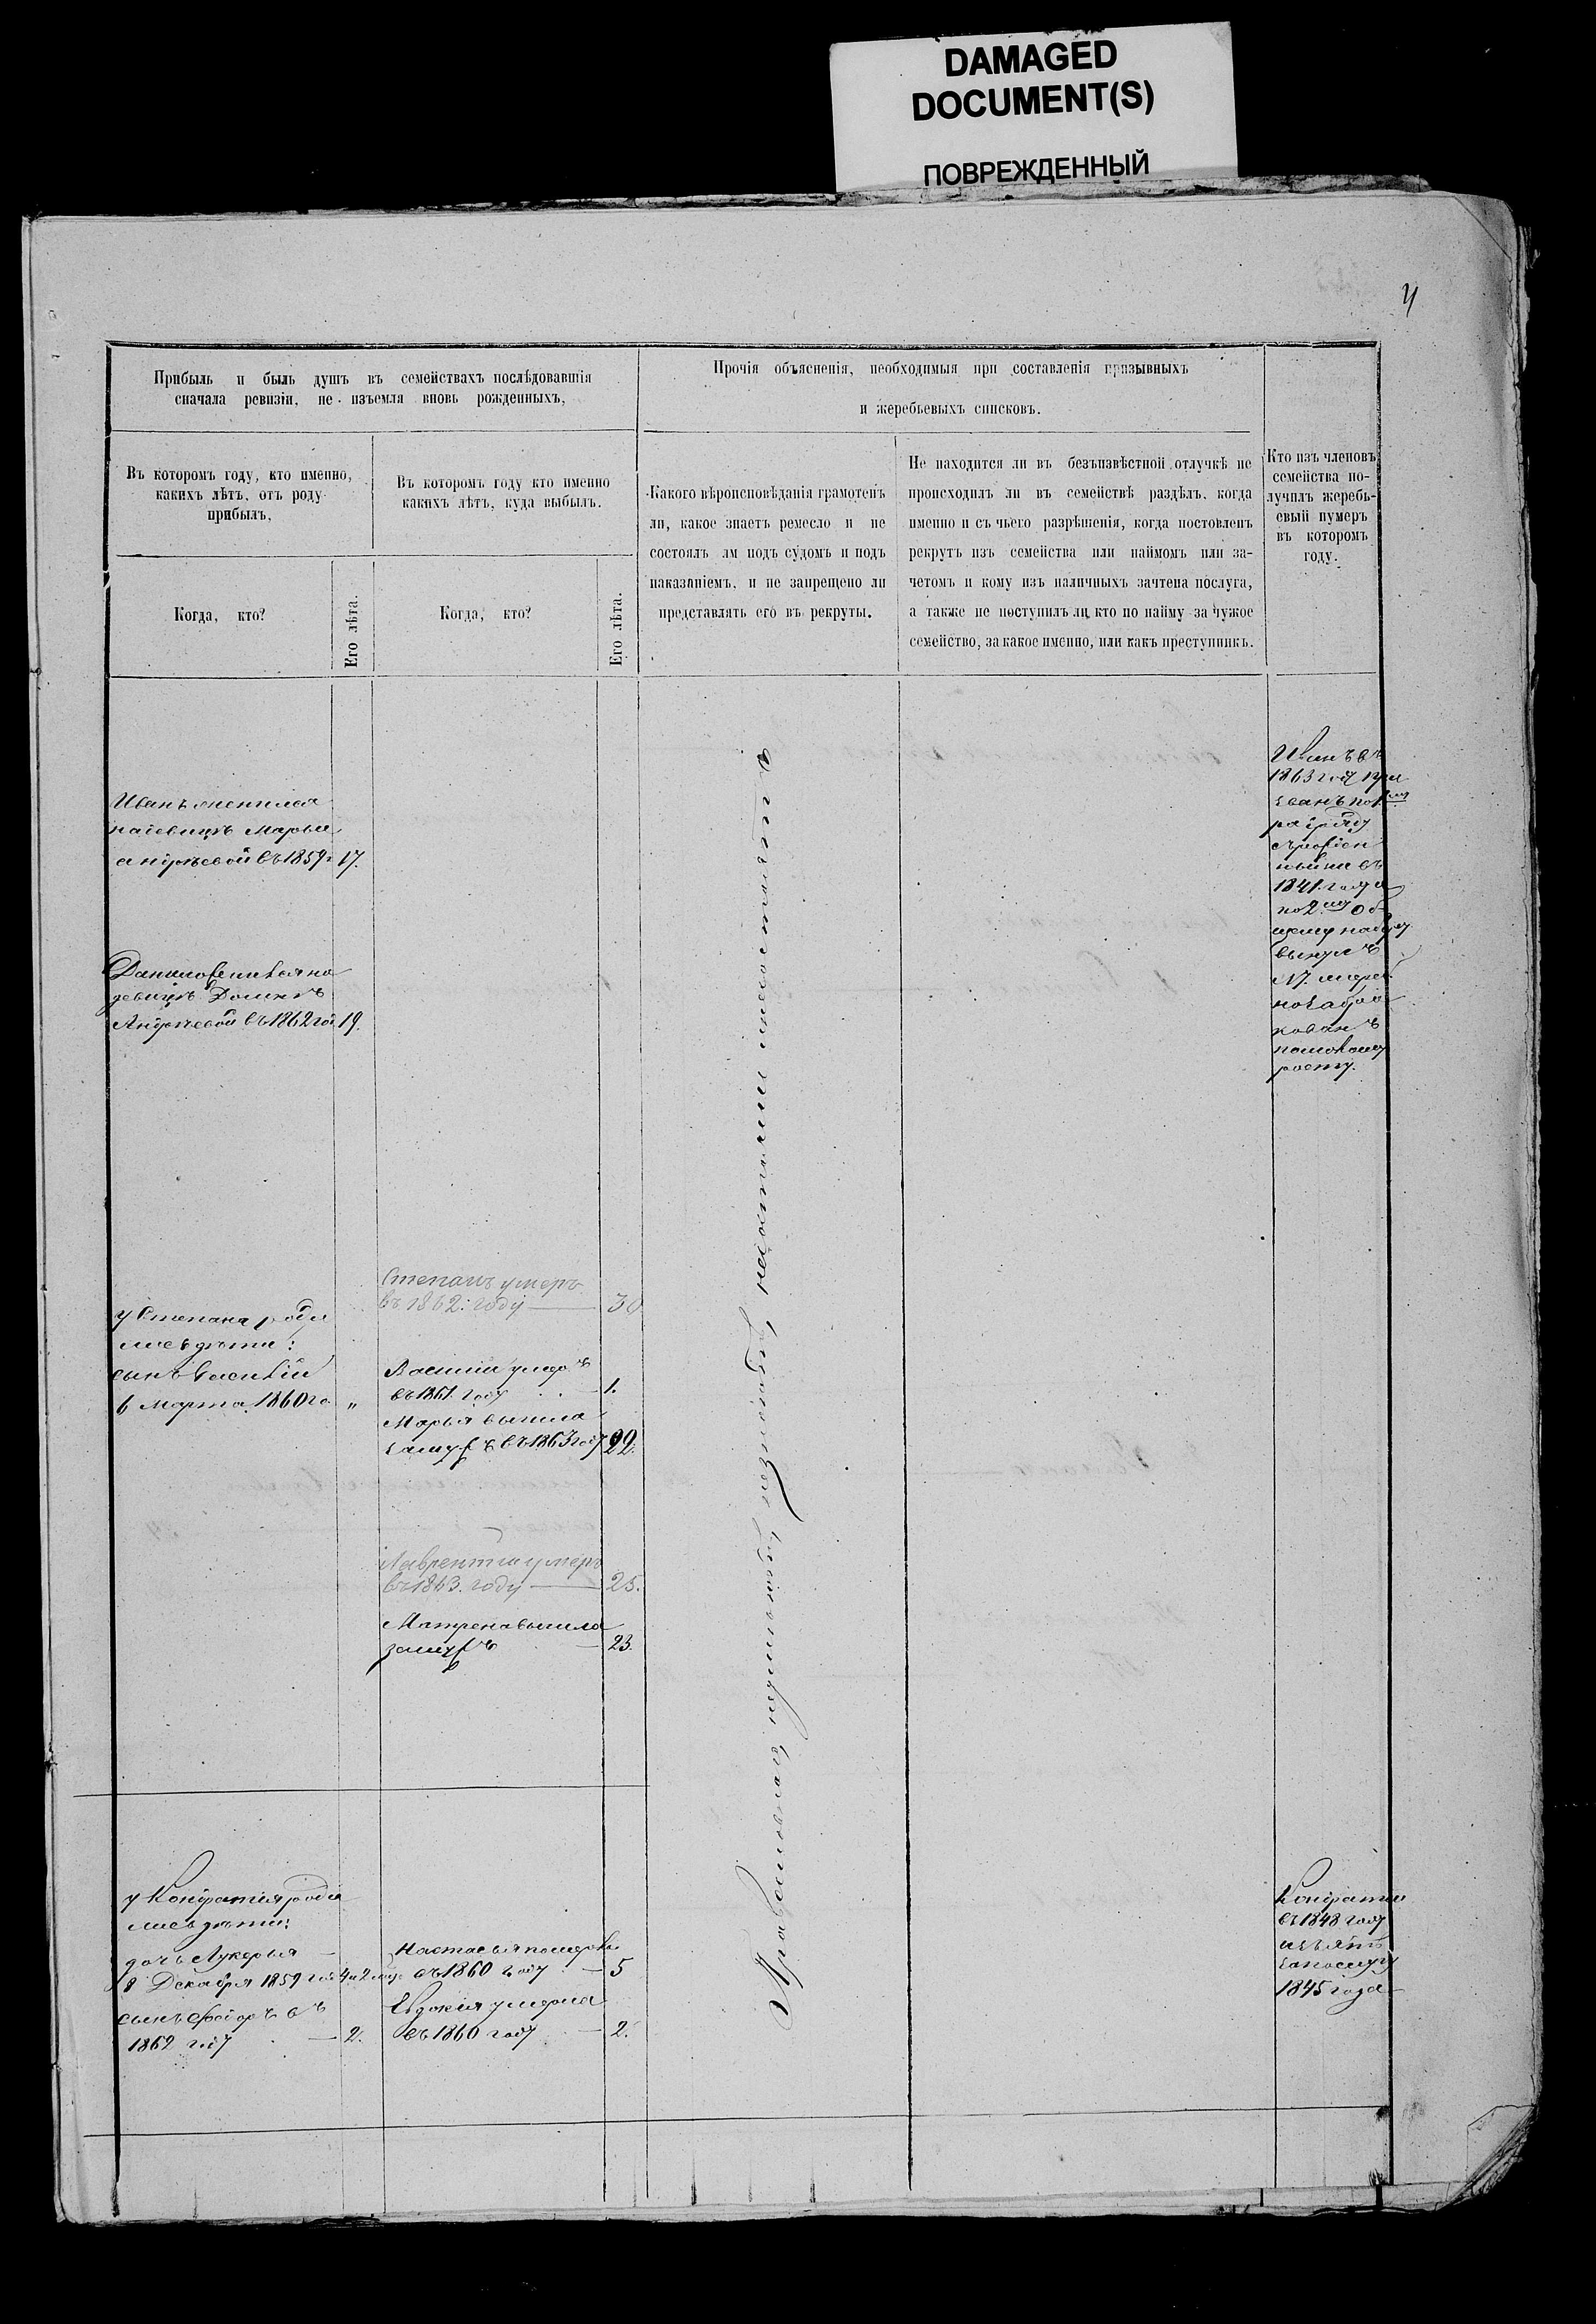 DAMAGED
DOCUMENT(S)
ПОВРЕЖДЕННЫЙ
4
Прибыль и быль душъ въ семействахъ послѣдовавшія
сначала ревизіи, не изъемля вновь рожденныхъ,
Въ которомъ году, кто именно,
какихъ лѣтъ, отъ роду
прибылъ,
Въ которомъ году кто именно
какихъ лѣтъ, куда выбылъ.
Когда, кто?
Его лѣта.
Когда, кто?
Его лѣта.
Прочія объясненія, необходимыя при составленія призывныхъ
и жеребьевыхъ списковъ.
Какого вѣроисповѣданія грамотенъ
ли, какое знаетъ ремесло и не
состоялъ лм подъ судомъ и подъ
наказаніемъ, и не запрещено ли
представлять его въ рекруты.
Не находится ли въ безъизвѣстной отлучкѣ не
происходилъ ли въ семействѣ раздѣлъ, когда
именно и съ чьего разрѣшенія, когда постовленъ
рекрутъ изъ семейства или наймомъ или за-
четомъ и кому изъ наличныхъ зачтена послуга,
а также не поступилъ ли кто по найму за чужое
семейство, за какое именно, или какъ преступникъ.
Кто изъ членовъ
семейства по-
лучилъ жеребь-
евый нумеръ
въ которомъ
году.
Иванъ женился
на девицѣ Марьи
Андреевой въ 1859 г 17.
на
девицѣ
Андреевой въ 1862 го 19.
у Степана роди
лись дѣти:
сынъ Василій
6 Марта 1860 го "
у Кондратія роди
лись дѣти:
дочь Лукерья
8 Декабря 1859 го 4 и 2 мѣс
сынъ Федоръ въ
1862 году — 2.
Степанъ умеръ
въ 1862. году — 30
Василій умеръ
въ 1861. году — 1.
Марья вышла
замужъ въ 1863 году 22.
Лаврентій умеръ
въ 1863. году — 25.
Матрена вышла
замужъ — 23.
Настасья померла
въ 1860 году — 5
Евдокія умерла
въ 1860 году — 2.
Православнаго,
Иванъ въ
1863 году
по 1
въ
1841. года
по 2
вынулъ
№
по малому
росту.
Кондратій
въ 1848 году
1845 года